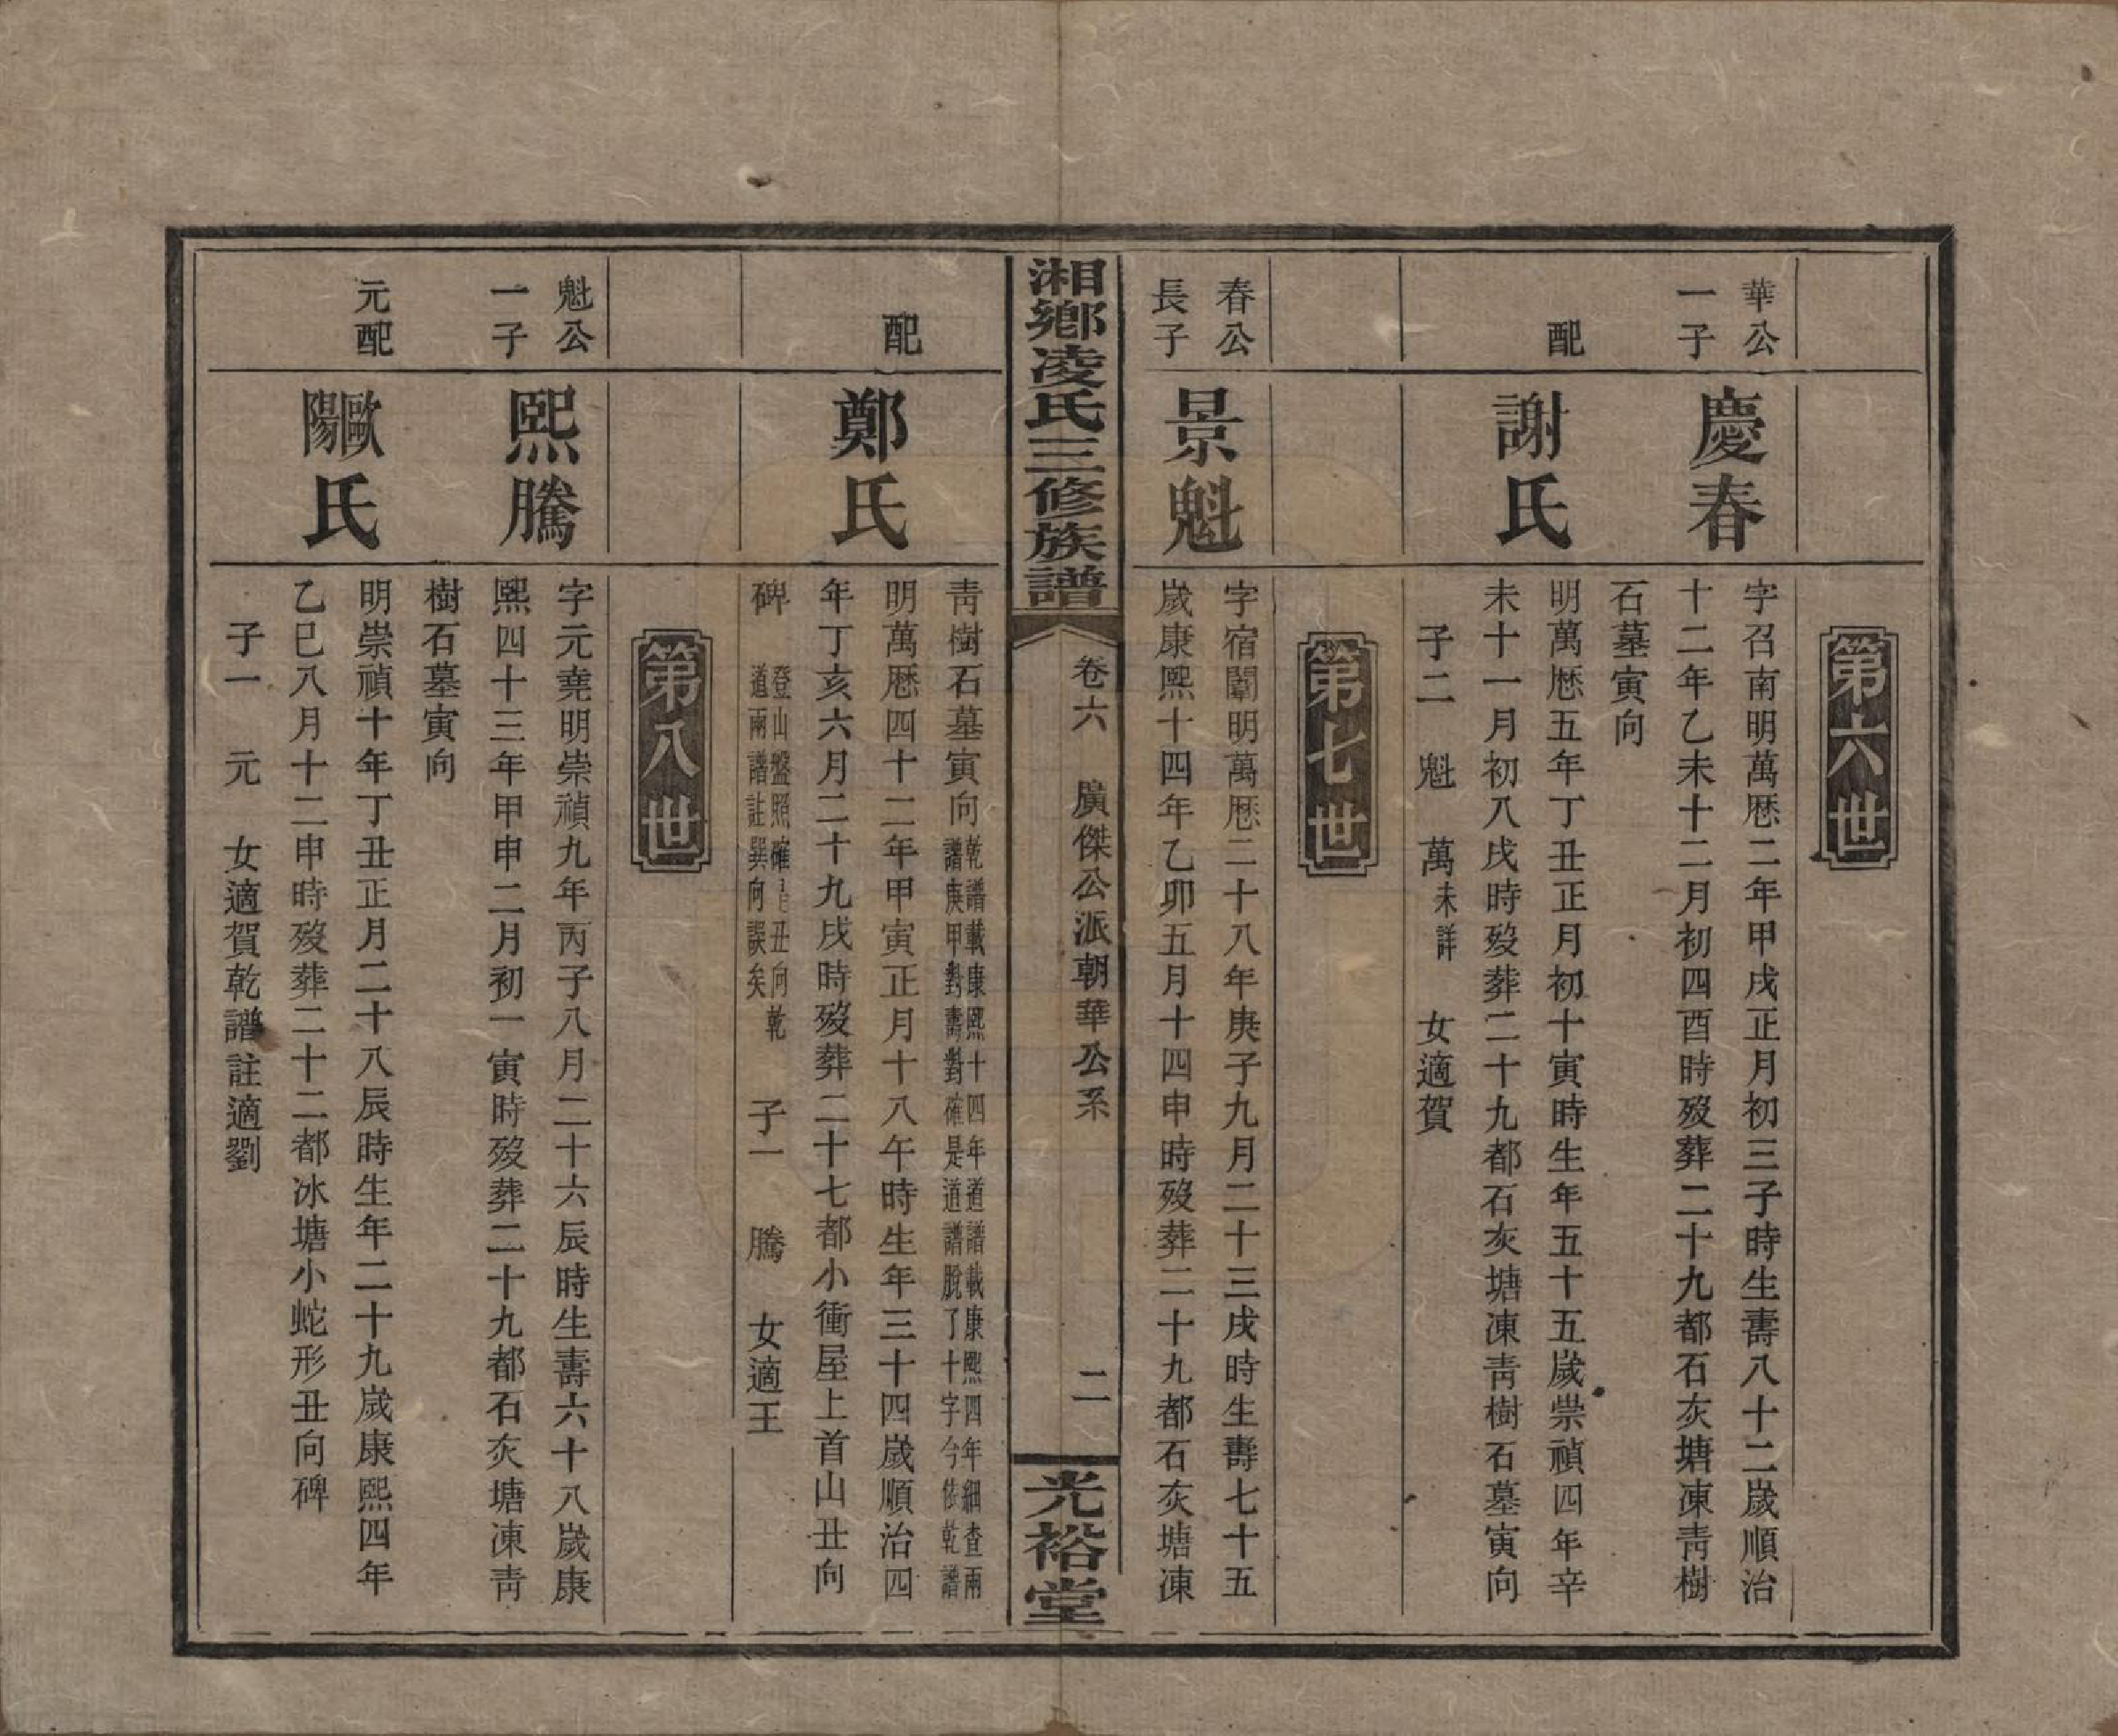 第六世
華公
一子
慶春
字召南明萬厯二年甲戌正月初三子時生壽八十二歲順治
十二年乙未十二月初四酉時歿葬二十九都石灰塘凍靑樹
石墓寅向
配
謝氏
明萬厯五年丁丑正月初十寅時生年五十五歲崇禎四年辛
未十一月初八戌時歿葬二十九都石灰塘凍靑樹石墓寅向
子二 魁 萬未詳 女適賀
第七世
春公
長子
景魁
字宿闈明萬厯二十八年庚子九月二十三戌時生壽七十五
歲康熙十四年乙卯五月十四申時歿葬二十九都石灰塘凍
湘鄉凌氏三修族譜
卷六 廣傑公派朝華公系
二
光裕堂
靑樹石墓寅向
乾譜載康熙十四年道譜載康熙四年細查兩
譜庚甲對壽對確是道譜脫了十字今依乾譜
配
鄭氏
明萬厯四十二年甲寅正月十八午時生年三十四歲順治四
年丁亥六月二十九戌時歿葬二十七都小衝屋上首山丑向
碑
登山盤照確丑向乾
道兩譜註巽向誤矣
子一 騰 女適王
第八世
魁公
一子
熙騰
字元堯明崇禎九年丙子八月二十六辰時生壽六十八歲康
熙四十三年甲申二月初一寅時歿葬二十九都石灰塘凍靑
樹石墓寅向
元配
歐陽氏
明崇禎十年丁丑正月二十八辰時生年二十九歲康熙四年
乙巳八月十二申時歿葬二十二都冰塘小蛇形丑向碑
子一 元 女適賀乾譜註適劉